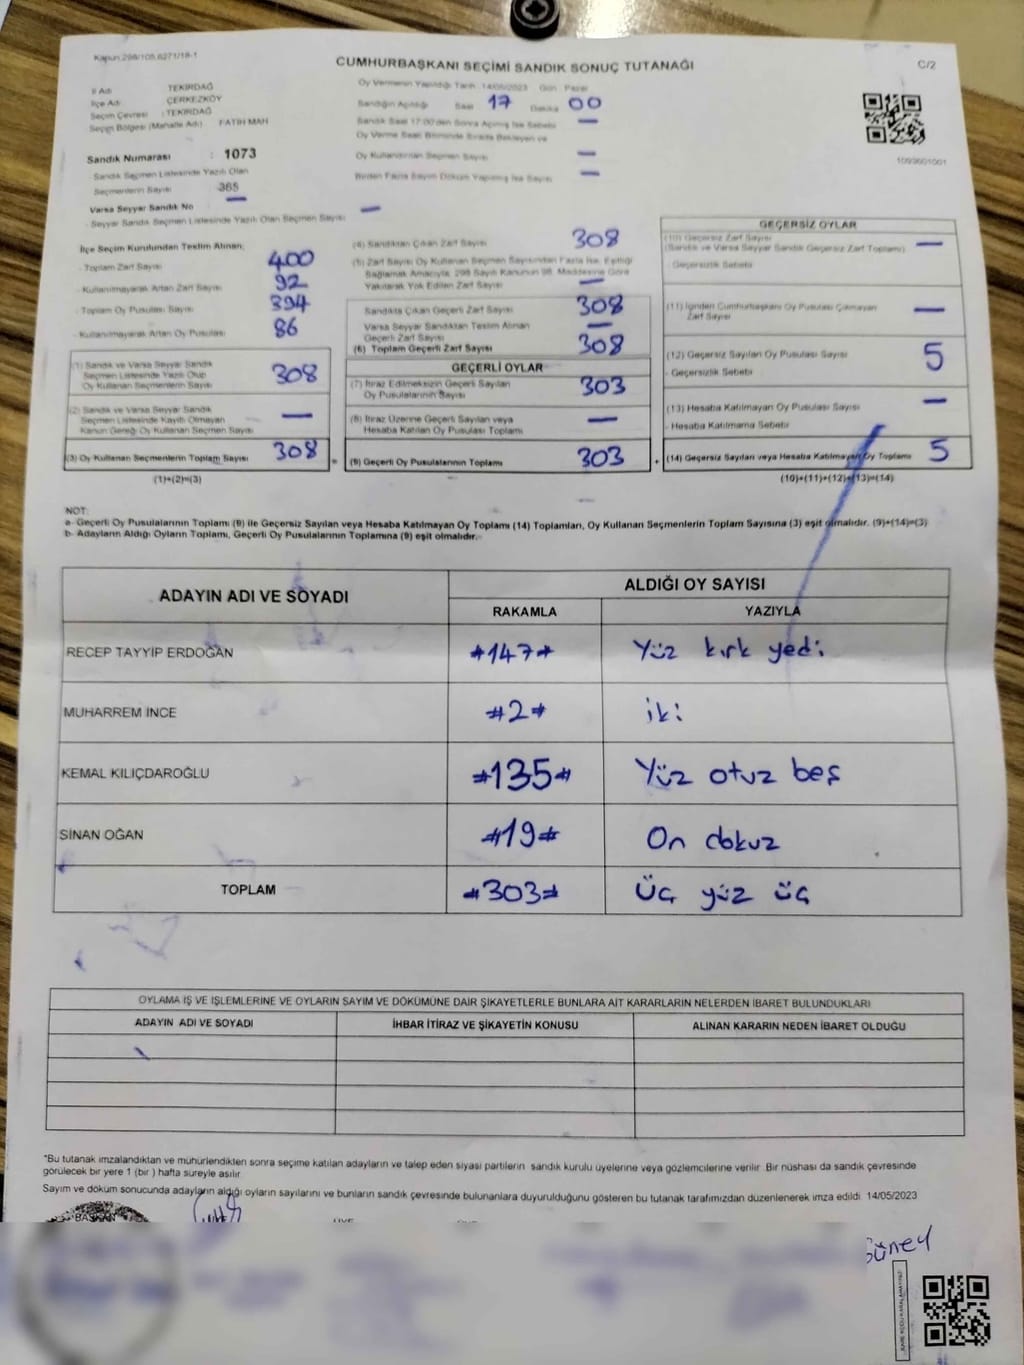 Kanun:298/105,6271/18-1
CUMHURBAŞKANI SEÇİMİ SANDIK SONUÇ TUTANAĞI
C/2
İl Adı TEKİRDAĞ
İlçe Adı ÇERKEZKÖY
Seçim Çevresi : TEKİRDAĞ
Seçim Bölgesi (Mahalle Adı) FATİH MAH
Sandık Numarası : 1073
Sandık Seçmen Listesinde Yazılı Olan
Seçmenlerin Sayısı 365
Varsa Seyyar Sandık No —
- Seyyar Sandık Seçmen Listesinde Yazılı Olan Seçmen Sayısı —
Oy Vermenin Yapıldığı Tarih :14/05/2023 Gün : Pazar
Sandığın Açıldığı Saat 17 Dakika 00
Sandık Saat 17:00'den Sonra Açılmış İse Sebebi —
Oy Verme Saati Bitiminde Sırada Bekleyen ve
Oy Kullandırılan Seçmen Sayısı —
Birden Fazla Sayım Döküm Yapılmış İsa Sayısı —
1093601001
İlçe Seçim Kurulundan Teslim Alınan;
- Toplam Zarf Sayısı 400
- Kullanılmayarak Artan Zarf Sayısı 92
- Toplam Oy Pusulası Sayısı 394
- Kullanılmayarak Artan Oy Pusulası 86
(1) Sandık ve Varsa Seyyar Sandık
Seçmen Listesinde Yazılı Olup
Oy Kullanan Seçmenlerin Sayısı 308
(2) Sandık ve Varsa Seyyar Sandık
Seçmen Listesinde Kayıtlı Olmayan
Kanun Gereği Oy Kullanan Seçmen Sayısı —
(3) Oy Kullanan Seçmenlerin Toplam Sayısı 308 =
(1)+(2)=(3)
(4) Sandıktan Çıkan Zarf Sayısı 308
(5) Zarf Sayısı Oy Kullanan Seçmen Sayısından Fazla İse, Eşitliği
Sağlamak Amacıyla, 298 Sayılı Kanunun 98. Maddesine Göre
Yakılarak Yok Edilen Zarf Sayısı —
Sandıkta Çıkan Geçerli Zarf Sayısı 308
Varsa Seyyar Sandıktan Teslim Alınan
Geçerli Zarf Sayısı —
(6) Toplam Geçerli Zarf Sayısı 308
GEÇERLİ OYLAR
(7) İtiraz Edilmeksizin Geçerli Sayılan
Oy Pusulalarının Sayısı 303
(8) İtiraz Üzerine Geçerli Sayılan veya
Hesaba Katılan Oy Pusulası Toplamı —
(9) Geçerli Oy Pusulalarının Toplamı 303 +
GEÇERSİZ OYLAR
(10) Geçersiz Zarf Sayısı
(Sandık ve Varsa Seyyar Sandık Geçersiz Zarf Toplamı) —
- Geçersizlik Sebebi
(11) İçinden Cumhurbaşkanı Oy Pusulası Çıkmayan
Zarf Sayısı —
(12) Geçersiz Sayılan Oy Pusulası Sayısı 5
- Geçersizlik Sebebi
(13) Hesaba Katılmayan Oy Pusulası Sayısı —
- Hesaba Katılmama Sebebi
(14) Geçersiz Sayılan veya Hesaba Katılmayan Oy Toplamı 5
(10)+(11)+(12)+(13)=(14)
NOT:
a- Geçerli Oy Pusulalarının Toplamı (9) ile Geçersiz Sayılan veya Hesaba Katılmayan Oy Toplamı (14) Toplamları, Oy Kullanan Seçmenlerin Toplam Sayısına (3) eşit olmalıdır. (9)+(14)=(3)
b- Adayların Aldığı Oyların Toplamı, Geçerli Oy Pusulalarının Toplamına (9) eşit olmalıdır.
ADAYIN ADI VE SOYADI ALDIĞI OY SAYISI
RAKAMLA YAZIYLA
RECEP TAYYİP ERDOĞAN #147# Yüz kırk yedi
MUHARREM İNCE #2# iki
KEMAL KILIÇDAROĞLU #135# Yüz otuz beş
SİNAN OĞAN #19# On dokuz
TOPLAM #303# Üç yüz üç
OYLAMA İŞ VE İŞLEMLERİNE VE OYLARIN SAYIM VE DÖKÜMÜNE DAİR ŞİKAYETLERLE BUNLARA AİT KARARLARIN NELERDEN İBARET BULUNDUKLARI
ADAYIN ADI VE SOYADI İHBAR İTİRAZ VE ŞİKAYETİN KONUSU ALINAN KARARIN NEDEN İBARET OLDUĞU
"Bu tutanak imzalandıktan ve mühürlendikten sonra seçime katılan adayların ve talep eden siyasi partilerin sandık kurulu üyelerine veya gözlemcilerine verilir. Bir nüshası da sandık çevresinde
görülecek bir yere 1 (bir ) hafta süreyle asılır.
Sayım ve döküm sonucunda adayların aldığı oyların sayılarını ve bunların sandık çevresinde bulunanlara duyurulduğunu gösteren bu tutanak tarafımızdan düzenlenerek imza edildi. 14/05/2023
BAŞKAN
Güney